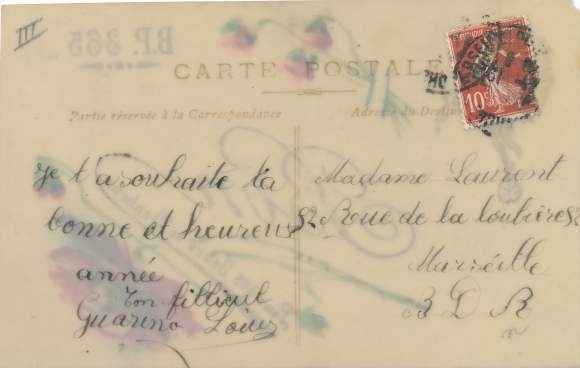 III
CARTE POSTALE
Partie réservée à la Correspondance
Adresse du Destin
10
je t'a souhaite ta
bonne et heureus
année
Ton fillieul
Guarino Loius
Madame Laurent
82 Rue de la loubière 82
Marseille
B D R